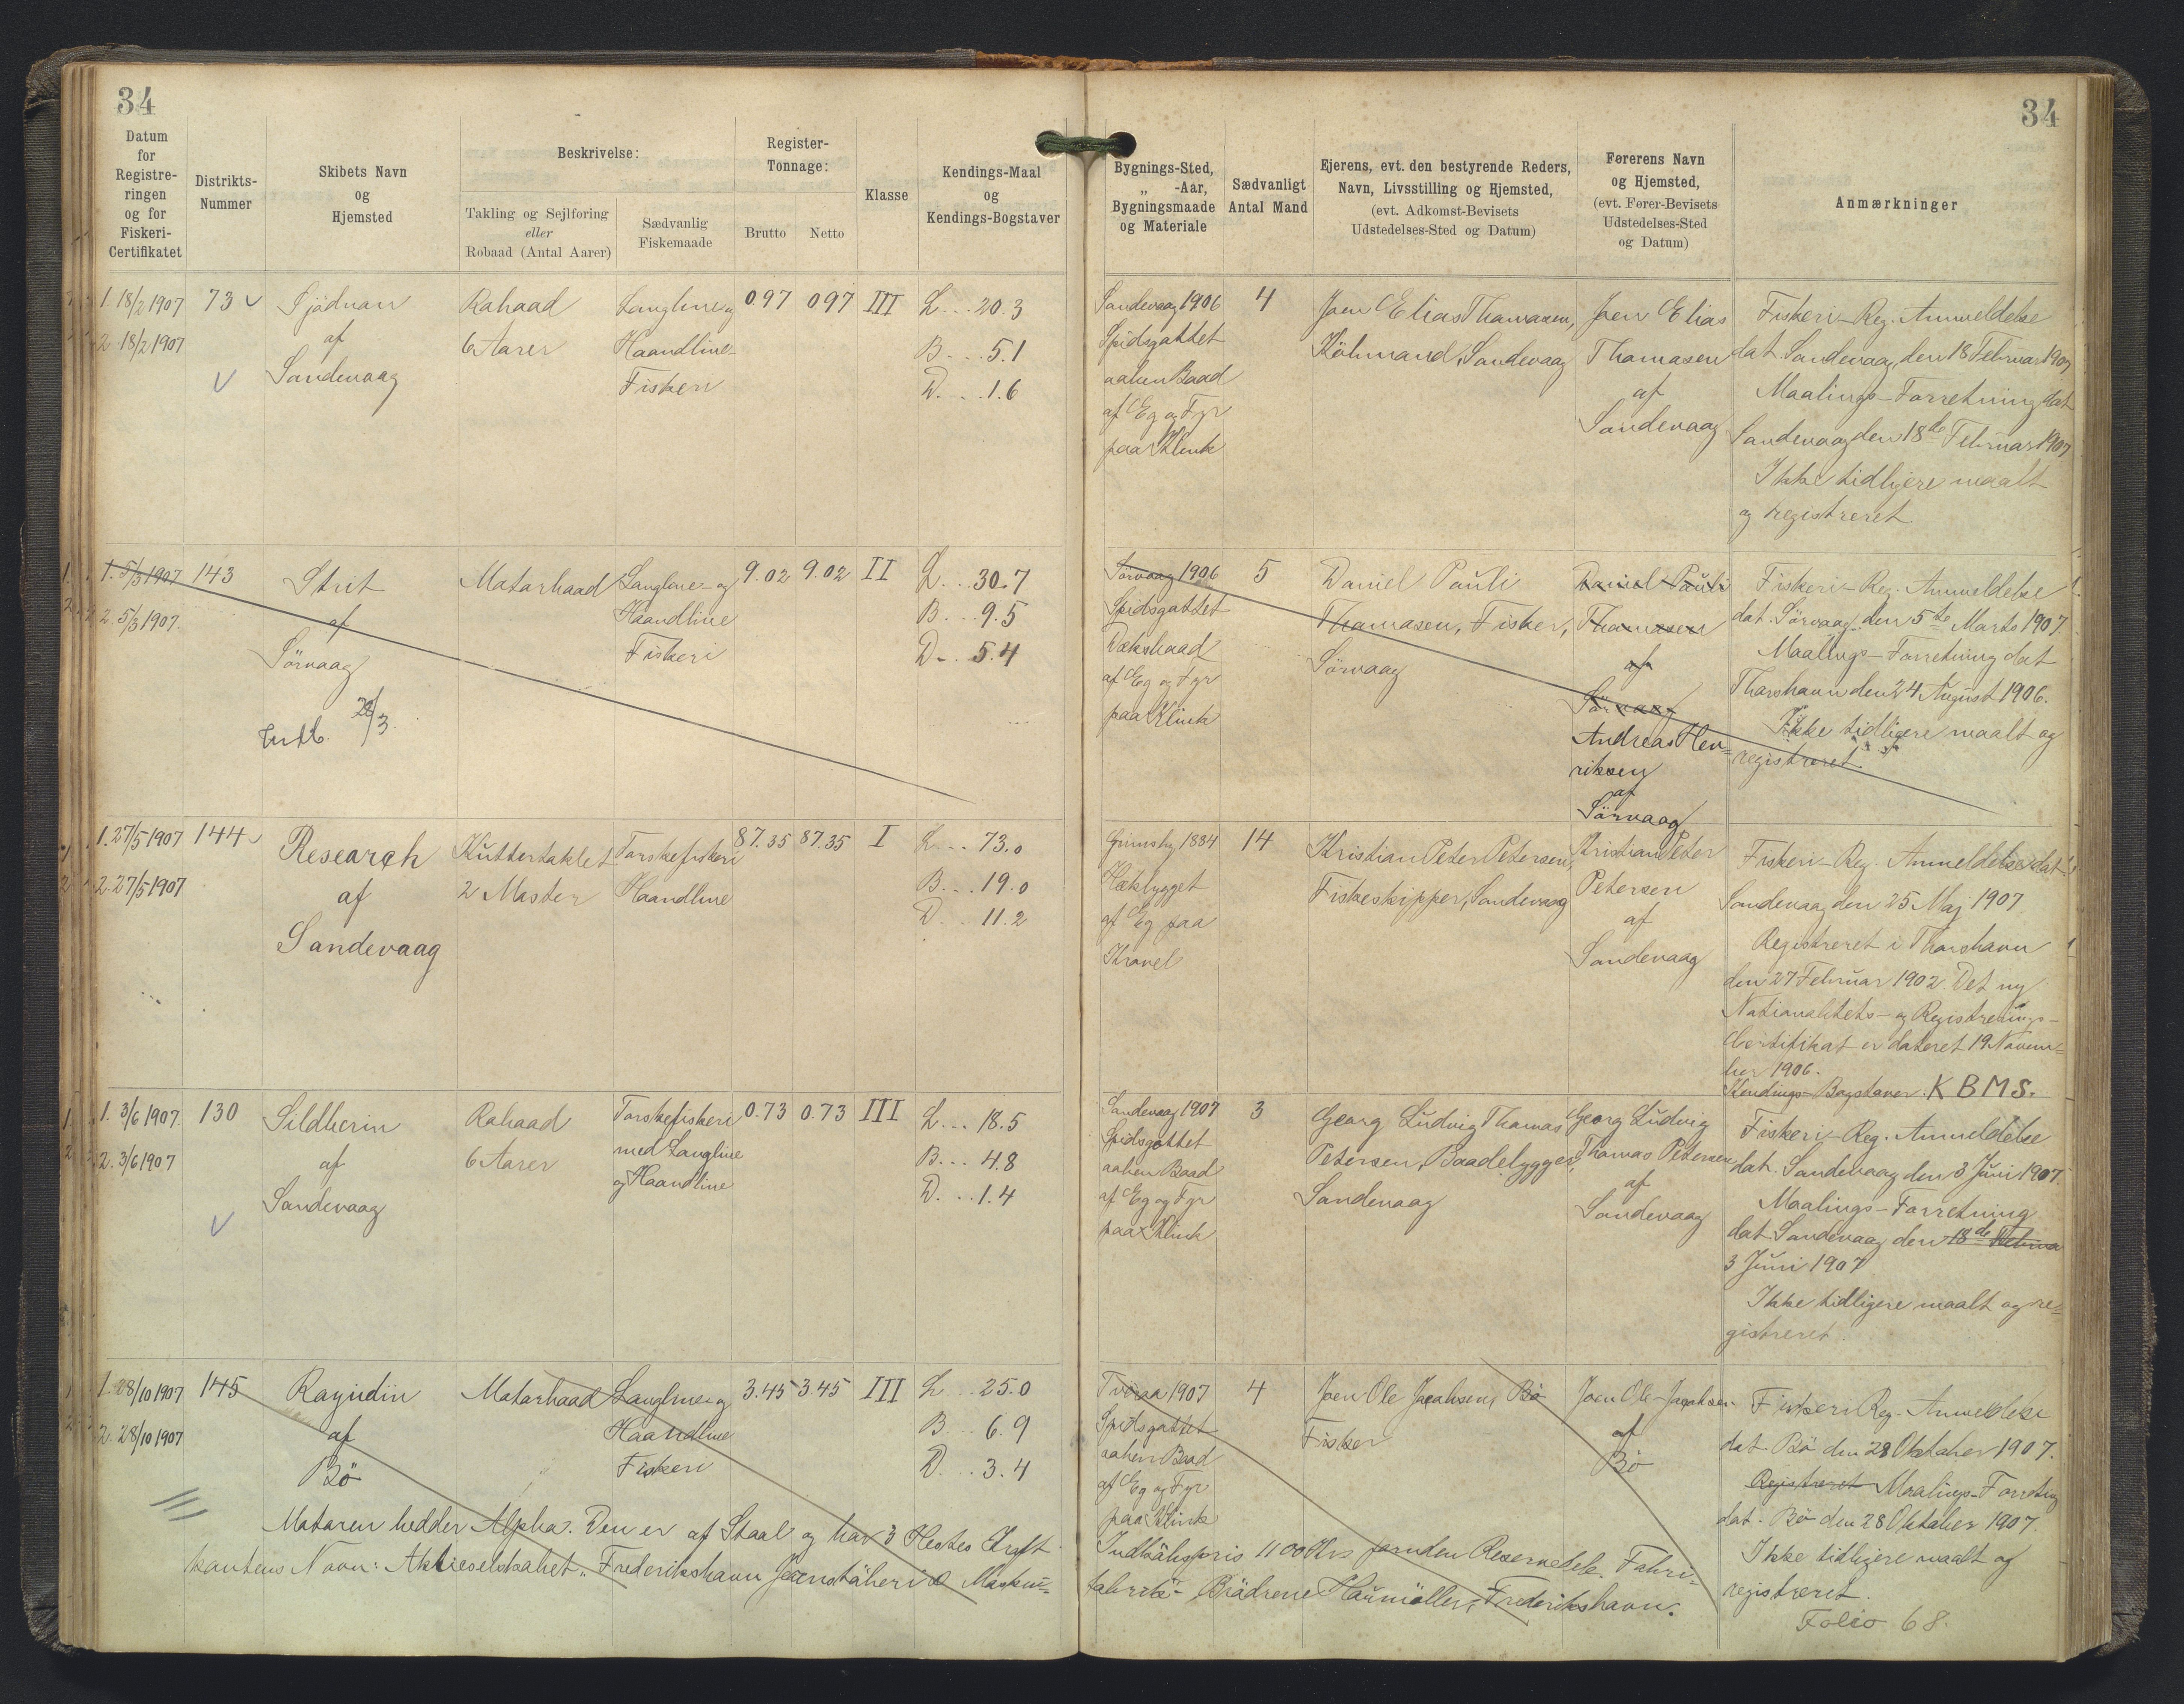 34
34
Datum
for
Registre-
ringen
og for
Fiskeri-
Certifikatet
Distrikts-
Nummer
Skibets Navn
og
Hjemsted
Beskrivelse:
Takling og Sejlføring
eller
Robaad (Antal Aarer)
Sædvanlig
Fiskemaade
Register-
Tonnage:
Brutto
Netto
Klasse
Kendings-Maal
og
Kendings-Bogstaver
Bygnings-Sted,
„ -Aar,
Bygningsmaade
og Materiale
Sædvanligt
Antal Mand
Ejerens, evt. den bestyrende Reders,
Navn, Livsstilling og Hjemsted,
(evt. Adkomst-Bevisets
Udstedelses-Sted og Datum)
Førerens Navn
og Hjemsted,
(evt. Fører-Bevisets
Udstedelses-Sted
og Datum)
Anmærkninger
1. 18/2 1907
2. 18/2 1907
73
af
Sandevaag
Robaad
6 Aarer
Langline og
Haandline-
Fiskeri
0.97
0.97
III
L... 20.3
B... 5.1
D... 1.6
Sandevaag 1906
Spidsgattet
aaben Baad
af Eg og Fyr
paa Klink
4
Joen Elias Thomasen,
Købmand, Sandevaag
Joen Elias
Thomasen
af
Sandevaag
Fiskeri-Reg. Anmeldelse
dat. Sandevaag, den 18 Februar 1907
Maalings-Forretning dat
Sandevaag den 18de Februar 1907
Ikke tidligere maalt
og registreret
1. 5/3 1907
2. 5/3 1907.
143
Strit
af
Sörvaag
28/3.
Motorbaad
Langline- og
Haandline
Fiskeri
9.02
9.02
II
L... 30.7
B... 9.5
D... 5.4
Sörvaag 1906
Spidsgattet
Dæksbaad
af Eg og Fyr
paa Klink
5
Daniel Pauli
Thomasen, Fisker,
Sörvaag
Daniel Pauli
Thomasen
af
Sörvaag
Andreas Hen-
riksen
af
Sörvaag
Fiskeri-Reg. Anmeldelse
dat. Sørvaag den 5te Marts 1907.
Maalings-Forretning dat
Thorshavn den 24 August 1906.
Ikke tidligere maalt og
registreret.
1. 27/5 1907
2. 27/5 1907
144
Research
af
Sandevaag
Kuttertaklet
2 Master
Torskefiskeri
Haandline
87.35
87.35
I
L... 73.0
B... 19.0
D... 11.2
Grimsby 1884
Hækbygget
af Eg paa
Kravel
14
Kristian Peter Petersen,
Fiskeskipper, Sandevaag
Kristian Peter
Petersen
af
Sandevaag
Fiskeri-Reg. Anmeldelse dat.
Sandevaag den 25 Maj 1907
Registreret i Thorshavn
den 27 Februar 1902. Det ny
Nationalitets- og Registrerings-
Certifikat er dateret 19 Novem-
ber 1906.
Kendings-Bogstaver. KBMS.
1. 3/6 1907.
2. 3/6 1907
130
Sildberin
af
Sandevaag
Robaad
6 Aarer
Torskefiskeri
med Langline
og Haandline
0.73
0.73
III
L... 18.5
B... 4.8
D... 1.4
Sandevaag 1907
Spidsgattet
aaben Baad
af Eg og Fyr
paa Klink
3
Georg Ludvig Thomas
Petersen, Baadebygger,
Sandevaag
Georg Ludvig
Thomas Petersen
af
Sandevaag
Fiskeri-Reg. Anmeldelse
dat. Sandevaag den 3 Juni 1907.
Maalings-Forretning
dat. Sandevaag den 18de Februa
3 Juni 1907
Ikke tidligere maalt og re-
gistreret.
1. 28/10 1907
2. 28/10 1907
145
af
Bö
Motorbaad
Langline og
Haandline
Fiskeri
3.45
3.45
III
L... 25.0
B... 6.9
D... 3.4
Tvöraa 1907
Spidsgattet
aaben Baad
af Eg og Fyr
paa Klink
4
Joen Ole Jacobsen, Bö
Fisker
Joen Ole Jacobsen
af
Bö
Fiskeri Reg. Anmeldelse
dat. Bö den 28 Oktober 1907.
Registreret Maalings-Forretning
dat. Bö den 28 Oktober 1907.
Ikke tidligere maalt og
registreret.
Folio 68.
Motoren hedder Alpha. Den er af Staal og har 3 Hestes Kraft
Indkøbspris 1100 Kr foruden Reservedele. Fabri-
kantens Navn: Aktieselskabet „Frederikshavn Jernstöberi & Maskin-
fabrik" Brödrene Houmöller, Frederikshavn.